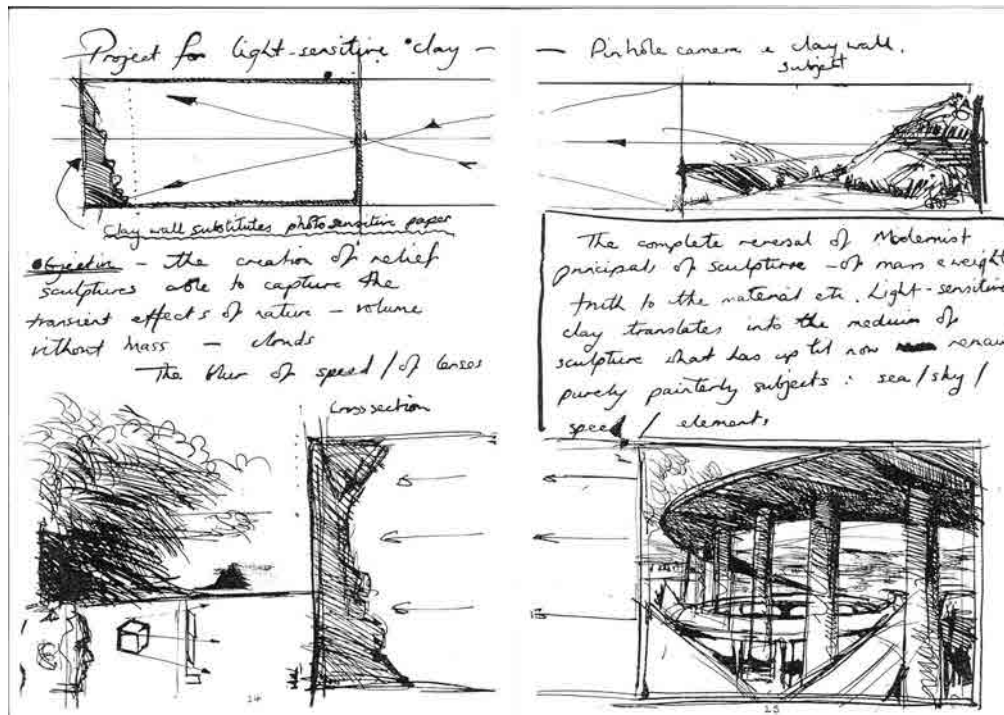 Project for light-sensitive clay —
Clay wall substitutes photo sensitive paper
Objective — the creation of relief
sculptures able to capture the
transient effects of nature — volume
without mass — clouds
The blur of speed / of lenses
Cross section
14
— Pinhole camera & clay wall.
subject
The complete reversal of Modernist
principals of sculpture — of mass & weight
truth to the material etc. Light-sensitive
clay translates into the medium of
sculpture what has up til now remain
purely painterly subjects : sea / sky /
speed / elements
15